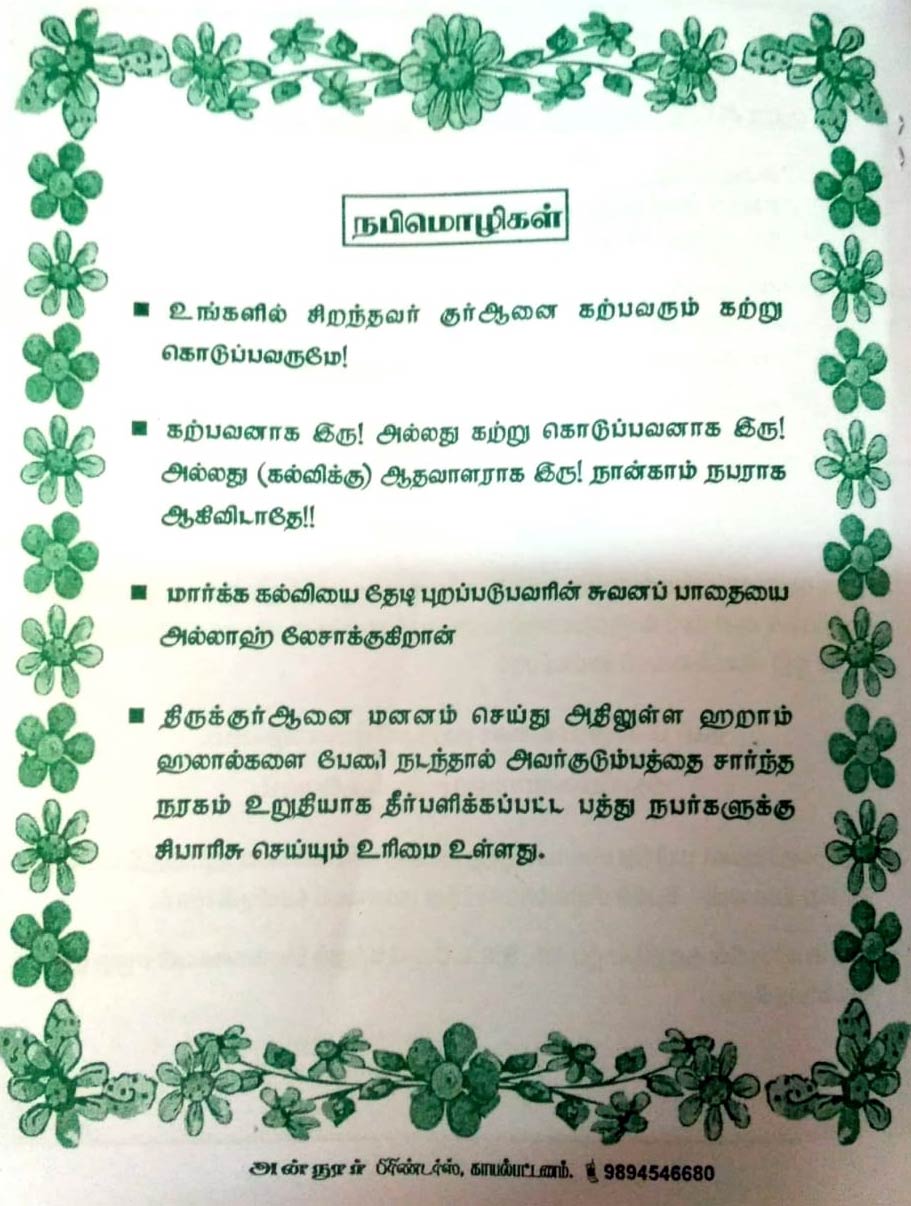 நபிமொழிகள்
■ உங்களில் சிறந்தவர் குர்ஆனை கற்பவரும் கற்று
கொடுப்பவருமே!
■ கற்பவனாக இரு! அல்லது கற்று கொடுப்பவனாக இரு!
அல்லது (கல்விக்கு) ஆதவாளராக இரு! நான்காம் நபராக
ஆகிவிடாதே!!
■ மார்க்க கல்வியை தேடி புறப்படுபவரின் சுவனப் பாதையை
அல்லாஹ் லேசாக்குகிறான்
■ திருக்குர்ஆனை மனனம் செய்து அதிலுள்ள ஹறாம்
ஹலால்களை பேணி நடந்தால் அவர்குடும்பத்தை சார்ந்த
நரகம் உறுதியாக தீர்பளிக்கப்பட்ட பத்து நபர்களுக்கு
சிபாரிசு செய்யும் உரிமை உள்ளது.
அன்நூர் பிரிண்டர்ஸ், காயல்பட்டணம். 9894546680